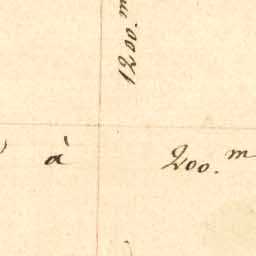 1200.m
à 200.m